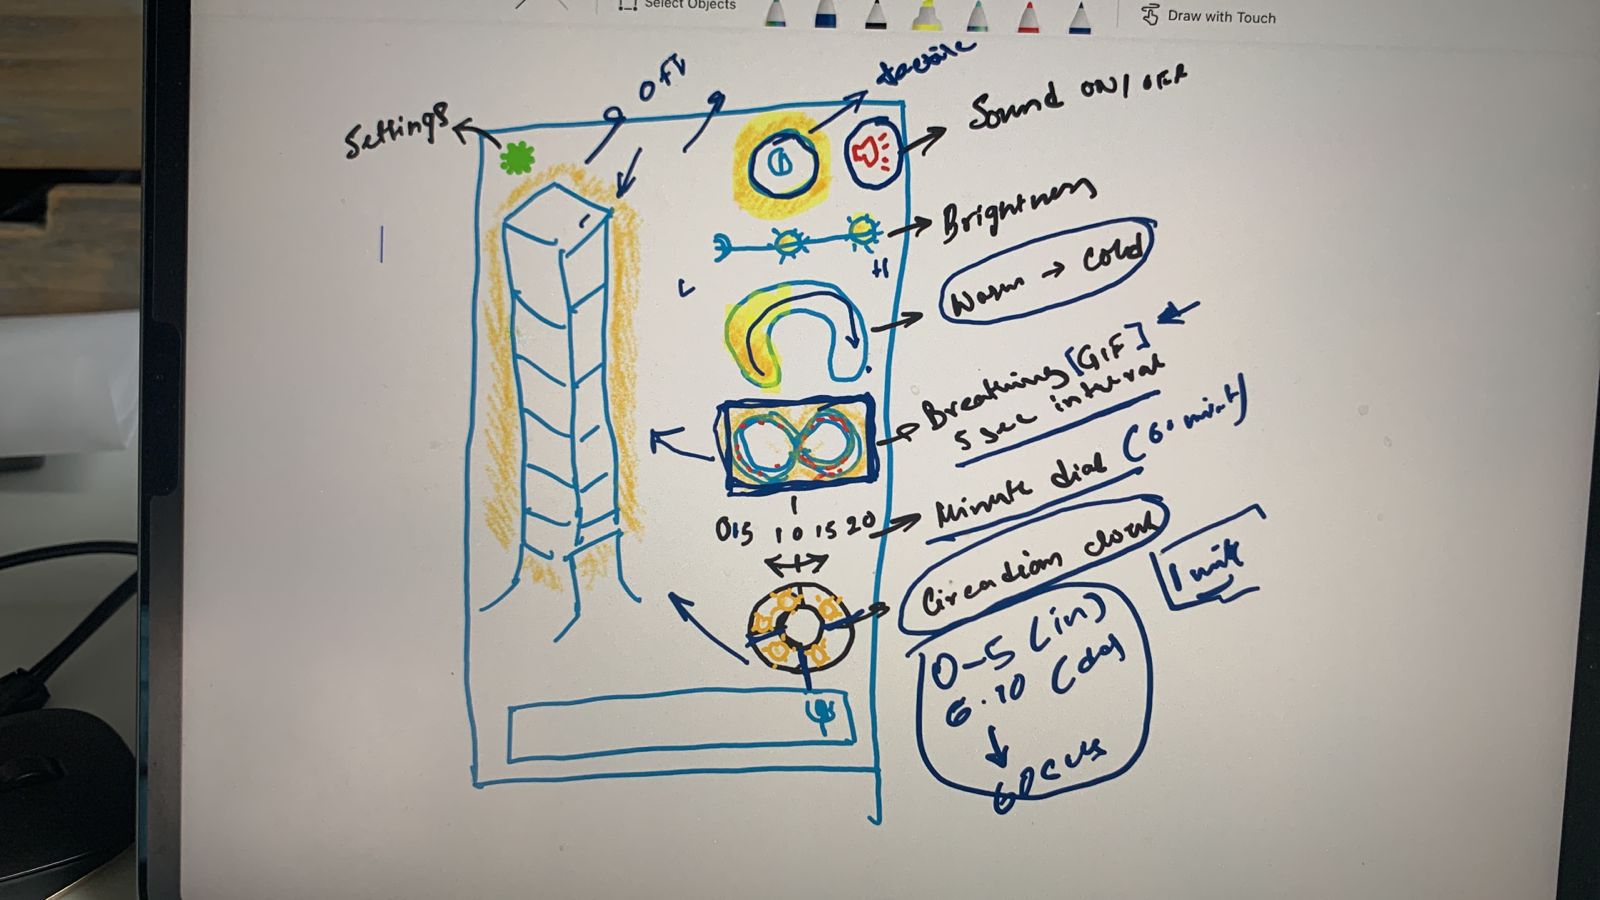 Select Objects
Draw with Touch
Settings
off
tactile
Sound ON/OFF
Brightness
L
H
Warm → Cold
Breathing [GIF]
5 sec interval
Minute dial (60 minut)
0 5 10 15 20
Circadian clock
0-5 (in)
6-10 (